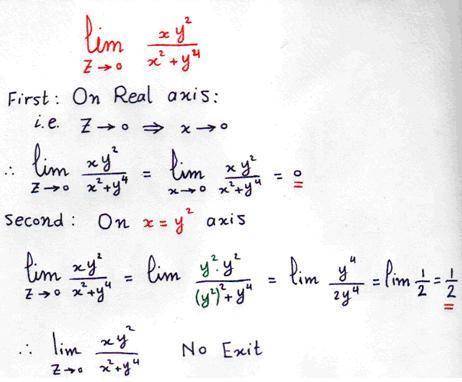 lim z→0 xy²/(x²+y⁴)
First: On Real axis:
i.e. z→0 ⇒ x→0
∴ lim z→0 xy²/(x²+y⁴) = lim x→0 xy²/(x²+y⁴) = 0
Second: On x=y² axis
lim z→0 xy²/(x²+y⁴) = lim y²·y²/((y²)²+y⁴) = lim y⁴/2y⁴ = lim 1/2 = 1/2
∴ lim z→0 xy²/(x²+y⁴) No Exit